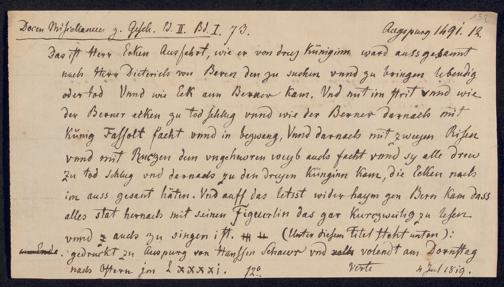 Docen Miscellaneen z. Gesch. Bd. II. Bl. I. 73. Augspurg 1491. 12
Das ist Herr Ecken Ausfahrt, wie er von dreij Künginn ward aussgesannt
nach Herr Dieterich von Beren den zu suchen vnnd zu bringen lebendig
oder tod Vnnd wie Eck ann Berner kam. Vnd mit im strit vnnd wie
der Berner ecken zu tod schlug vnnd wie der Berner darnach mit
Künig Fassolt facht vnnd in bezwang, Vnnd darnach mit zweyen Risen
vnnd mit Ruczen dem vngehewren weyb auch facht vnnd sy alle drew
zu tod schlug vnd darnach zu den dreyen Künginn kam, die Ecken nach
im auss gesant häten. Vnd auff das letst wider haym gen Bern kam dass
alles stat hernach mit seinen Figuerlin das gar kurczweilig zu lesen
vnnd auch zu singen ist. (Unter diesem Titel steht unten):
gedruckt zu Auspurg von Hannssen Schawr vnd volendt am Dornstag
nach Ostern jm LXXXXj. 12º Verte 4 Jul 1819.